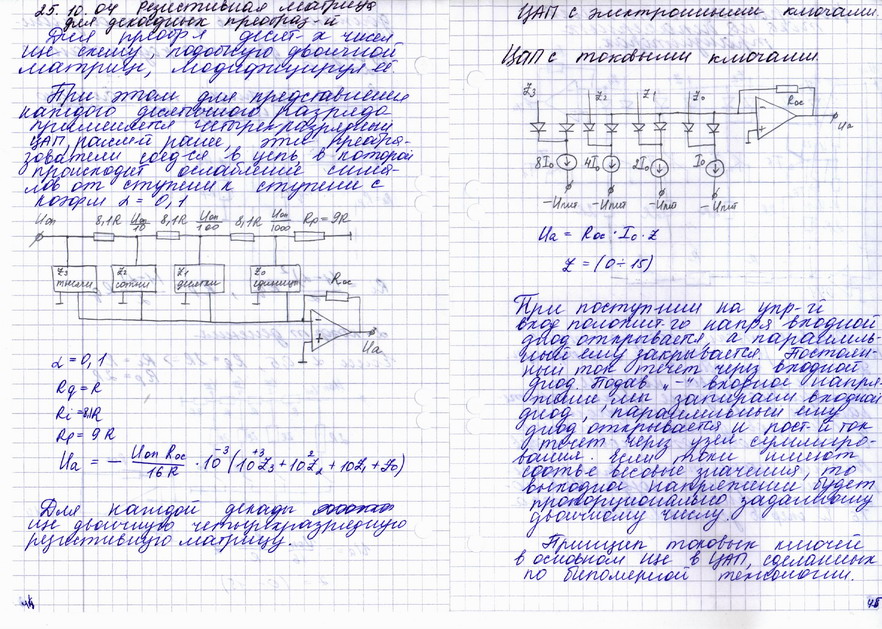 25.10.04 Резистивная матрица
для декадных преобраз-й
Для преобр-я десят-х чисел
исп схему подобную двоичной
матрице, модифицируя её.
При этом для представления
каждого десятичного разряда
применяется четырехразрядный
ЦАП, рассм-й ранее, эти преобра-
зователи соед-ся в цепь в которой
происходит ослабление сигна-
лов от ступени к ступени с
коэфм α = 0,1
Uоп 8,1R Uоп/10 8,1R Uоп/100 8,1R Uоп/1000 Rр = 9R
Z3 тысячи Z2 сотни Z1 десятки Z0 единицы Rос
Uа
α = 0,1
Rq = R
Ri = 8,1R
Rр = 9R
Uа = - Uоп Rос / 16R · 10^-3 (10^+3 Z3 + 10^2 Z2 + 10Z1 + Z0)
Для каждой декады
исп двоичную четырехразрядную
резистивную матрицу.
ЦАП с электронными ключами.
ЦАП с токовыми ключами.
Z3 Z2 Z1 Z0 Rос
Uа
8I0 4I0 2I0 I0
-Uпит -Uпит -Uпит -Uпит
Uа = Rос · I0 · Z
Z = (0÷15)
При поступлнии на упр-й
вход положит-го напря входной
диод открывается а параллель-
ный ему закрывается. Постоян-
ный ток течет через входной
диод. Подав "-" входное напря-
жение мы запираем входной
диод, параллельный ему
диод открывается и пост-й ток
течет через узел суммиро-
вания. Если токи имеют
соотв-е весовые значения, то
выходное напряжении будет
пропорционально заданному
двоичному числу.
Принцип токовых ключей
в основном исп в ЦАП, сделанных
по биполярной технологии.